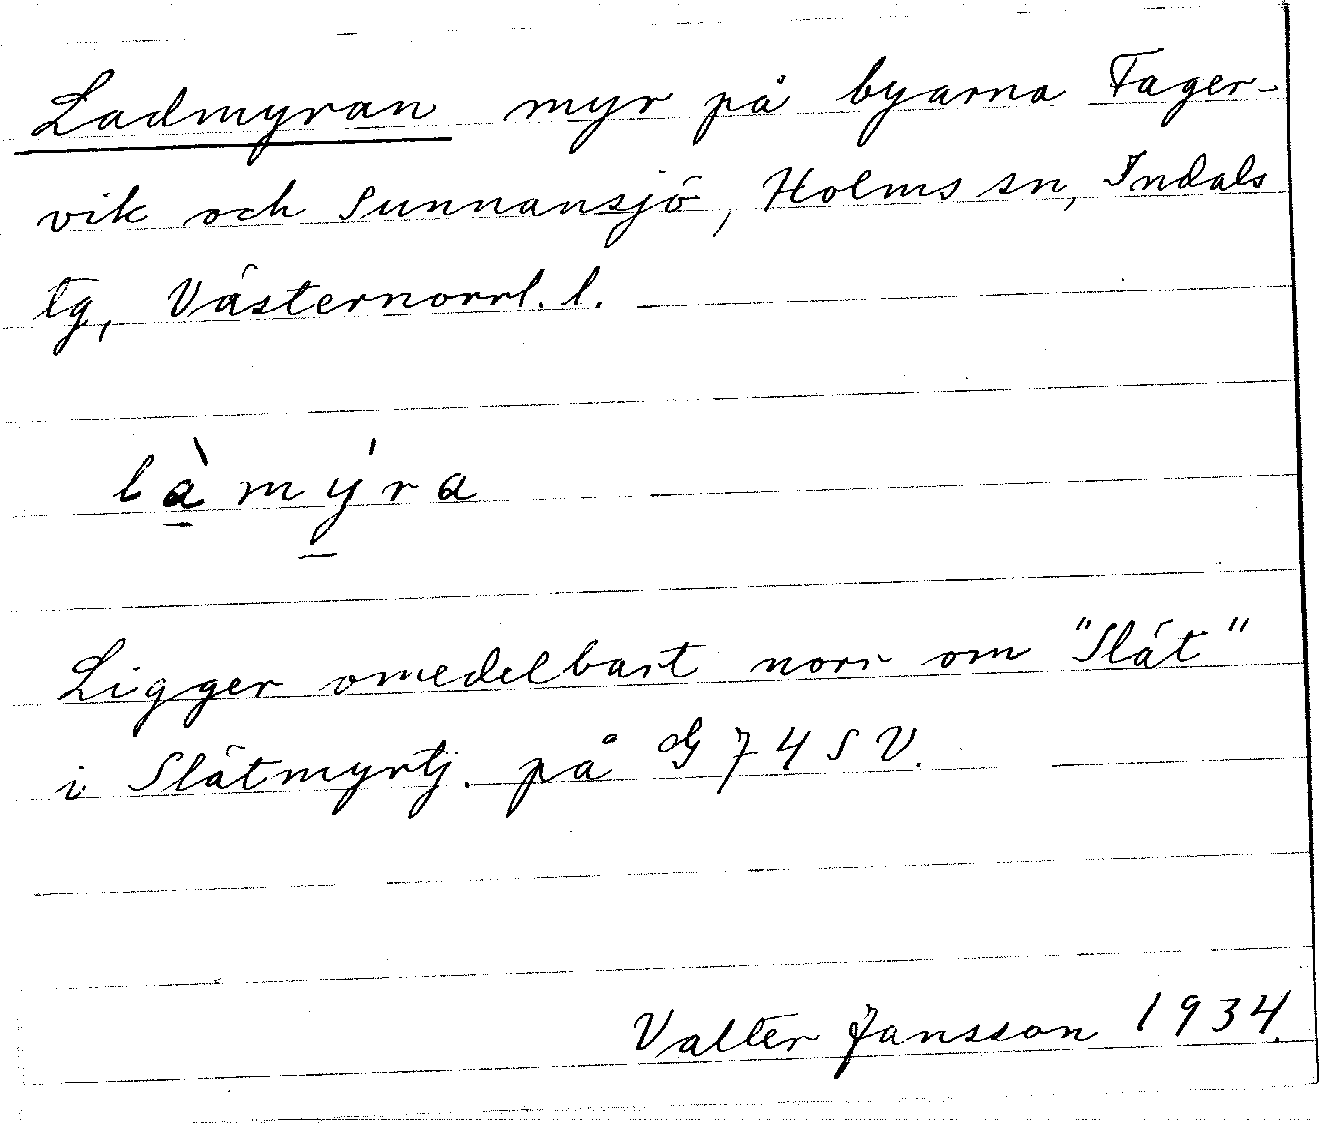 Ladmyran myr på byarna Fager-
vik och Sunnansjö, Holms sn, Indals
tg, Västernorrl. l.
là̱mý̱ra
Ligger omedelbart norr om "Slåt"
i Slåtmyrtj. på G 74 SV.
Valter Jansson 1934.